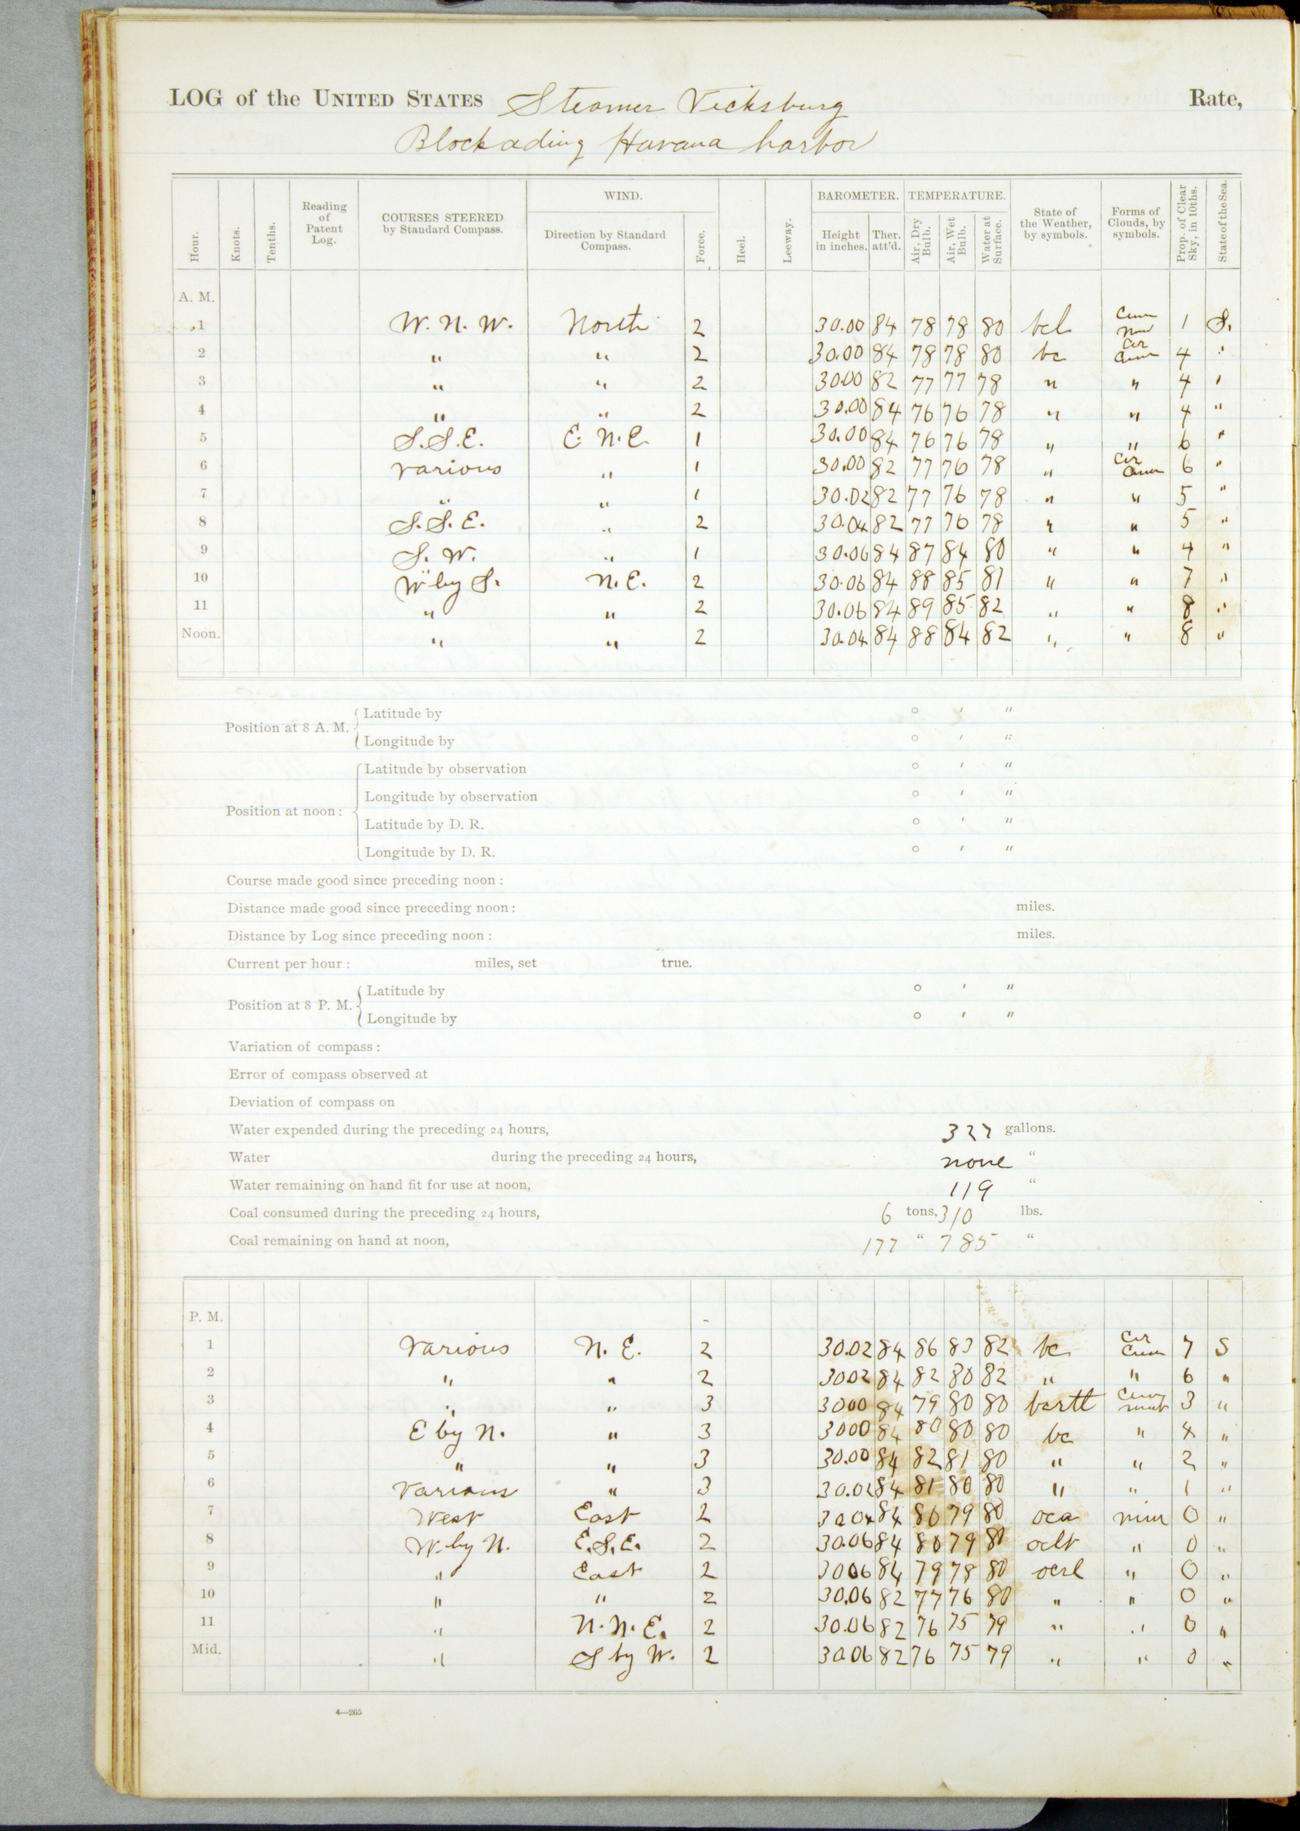 LOG of the UNITED STATES Steamer Vicksburg Rate,
Blockading Havana harbor
Hour. Knots. Tenths. Reading of Patent Log. COURSES STEERED by Standard Compass. WIND. Direction by Standard Compass. Force. Heel. Leeway. BAROMETER. Height in inches. Ther. att'd. TEMPERATURE. Air, Dry Bulb. Air, Wet Bulb. Water at Surface. State of the Weather, by symbols. Forms of Clouds, by symbols. Prop. of Clear Sky, in 10ths. State of the Sea.
A. M.
1 W. N. W. North 2 30.00 84 78 78 80 bcl Cum Nim 1 S.
2 " " 2 30.00 84 78 78 80 bc Cir Cum 4 "
3 " " 2 30.00 82 77 77 78 " " 4 "
4 " " 2 30.00 84 76 76 78 " " 4 "
5 S.S.E. E. N. E. 1 30.00 84 76 76 78 " " 6 "
6 various " 1 30.00 82 77 76 78 " Cir Cum 6 "
7 " " 1 30.02 82 77 76 78 " " 5 "
8 S. S. E. " 2 30.04 82 77 76 78 " " 5 "
9 S. W. " 1 30.06 84 87 84 80 " " 4 "
10 W by S. N. E. 2 30.06 84 88 85 81 " " 7 "
11 " " 2 30.06 84 89 85 82 " " 8 "
Noon. " " 2 30.04 84 88 84 82 " " 8 "
Position at 8 A. M. Latitude by ° ′ ″
Longitude by ° ′ ″
Latitude by observation ° ′ ″
Longitude by observation ° ′ ″
Position at noon:
Latitude by D. R. ° ′ ″
Longitude by D. R. ° ′ ″
Course made good since preceding noon:
Distance made good since preceding noon: miles.
Distance by Log since preceding noon: miles.
Current per hour: miles, set true.
Position at 8 P. M. Latitude by ° ′ ″
Longitude by ° ′ ″
Variation of compass:
Error of compass observed at
Deviation of compass on
Water expended during the preceding 24 hours, 327 gallons.
Water during the preceding 24 hours, none "
Water remaining on hand fit for use at noon, 119 "
Coal consumed during the preceding 24 hours, 6 tons, 310 lbs.
Coal remaining on hand at noon, 177 " 785 "
P. M.
1 various N. E. 2 30.02 84 86 83 82 bc Cir Cum 7 S
2 " " 2 30.02 84 82 80 82 " " 6 "
3 " " 3 30.00 84 79 80 80 bcrtl 3 "
4 E by N. " 3 30.00 84 80 80 80 bc " 4 "
5 " " 3 30.00 84 82 81 80 " " 2 "
6 various " 3 30.02 84 81 80 80 " " 1 "
7 West East 2 30.04 84 80 79 80 oca nim 0 "
8 W. by N. E.S.E. 2 30.06 84 80 79 80 oclt " 0 "
9 " East 2 30.06 84 79 78 80 ocrl " 0 "
10 " " 2 30.06 82 77 76 80 " " 0 "
11 " N. N. E. 2 30.06 82 76 75 79 " " 0 "
Mid. " S by W. 2 30.06 82 76 75 79 " " 0 "
4—265